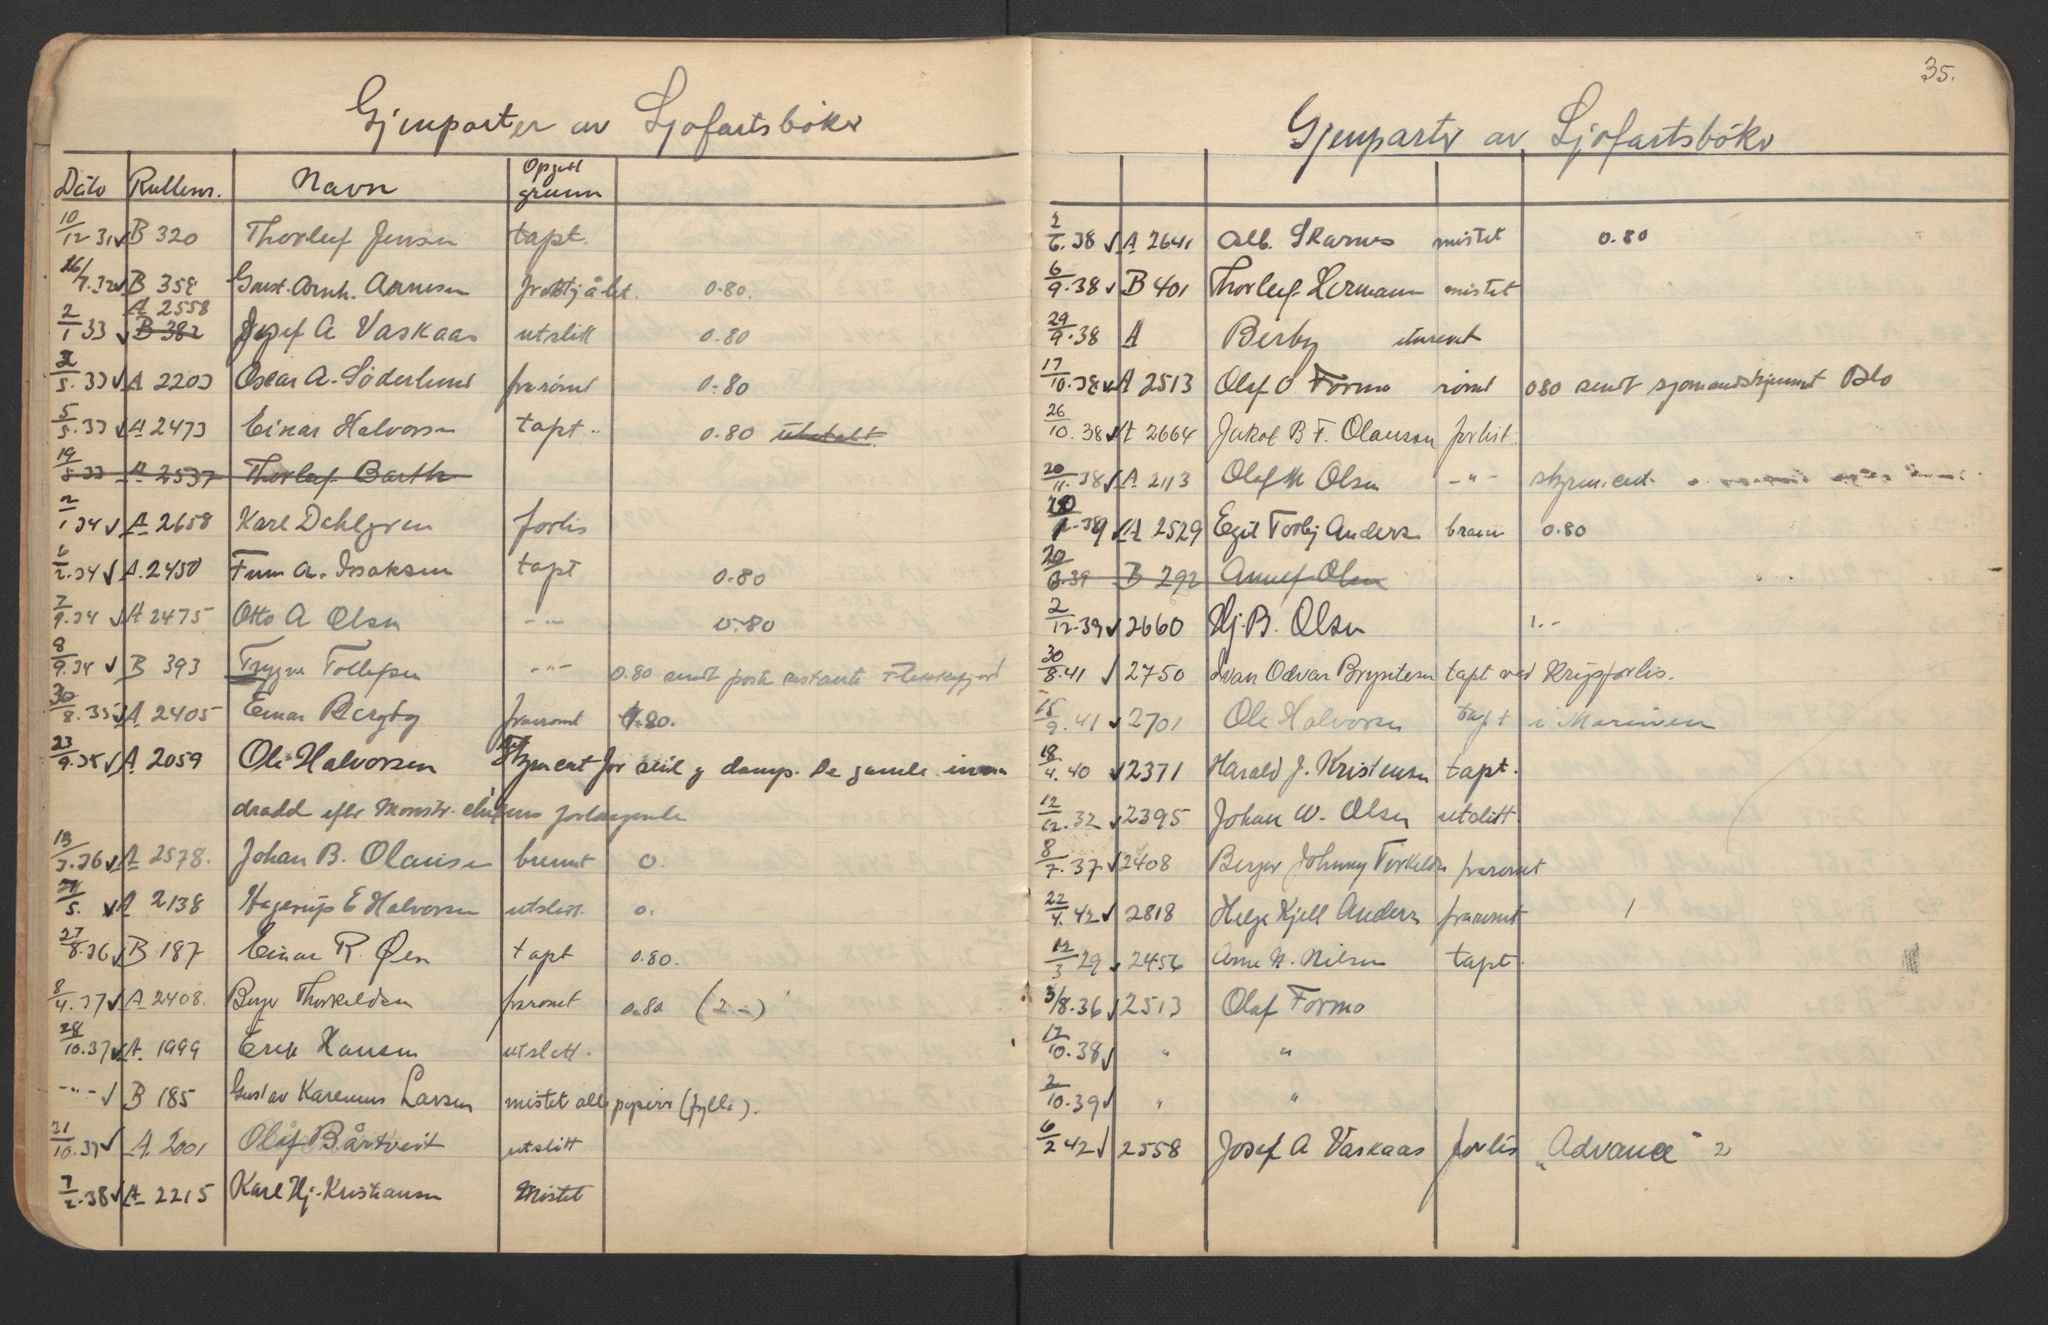 Gjenparter av Sjøfartsbøker
Dato Rullenr. Navn Opgitt grunn
10/12 31 ✓ B 320 Thorleif Jensen tapt.
26/7.32 ✓ B 358 Gust. Arnh. Arnesen frastjålet. 0.80.
A 2558
2/1 33 ✓ B 382 Josef A Vaskaas utslitt 0.80
2/5.33 ✓ A 2203 Oscar A. Söderlund frarømt 0.80
5/5.33 ✓ A 2473 Einar Halvorsen tapt. 0.80 ubetalt.
19/5 33 A 2537 Thorleif Barth
2/1 34 ✓ A 2658 Karl Dahlgren forlis
6/2.34 ✓ A. 2450 Finn A. Isaksen tapt 0.80
7/9.34 ✓ A 2475 Otto A Olsen -"- 0.80
8/9.34 ✓ B 393 Trygve Tollefsen -"- 0.80 sendt poste restante Flekkefjord
30/8.35 ✓ A 2405 Einar Bergby frarømt 0.80.
23/9.35 ✓ A 2059 Ole Halvorsen Styrmcert for seil g damp. De gamle inn
dradd efter Mønstr. chefens forlangende
13/3.36 ✓ A 2578. Johan B. Olausen brennt 0.
21/5. ✓ A 2138 Hagerup E Halvorsen utslitt. 0.
27/8.36 ✓ B 187 Einar R. Øen tapt 0.80.
8/4.37 ✓ A 2408. Berger Thorkildsen frarømt 0.80 (2.-)
28/10.37 ✓ A. 1999 Erik Hansen utslitt.
-"- ✓ B 185 Gustav Karenius Larsen mistet alle papirer (fylla).
21/10.37 ✓ A 2001 Olaf Bårtveit utslitt
7/2.38 ✓ A 2215 Karl Hj. Kristiansen Mistet
35.
Gjenparter av Sjøfartsbøker
2/6.38 ✓ A 2641 Alb. Skarnes mistet 0.80
6/9.38 ✓ B 401 Thorleif Hermann mistet
29/9.38 A Berby
17/10.38 ✓ A 2513 Olaf O. Formo rømt 0.80 sendt sjømandskjemmet Oslo
26/10.38 ✓ A 2664 Jakob B F. Olausen forlist.
20/11.38 ✓ A 2113 Olaf M Olsen -"- styrm. cert.
A 2529 Egil Torbj Anders brann 0.80
B 292 Arnulf Olsen
2/12.39 ✓ 2660 Hj. B. Olsen 1.-
30/8.41 ✓ 2750 Ivan Odvar Bryntesen tapt ved Krigsforlis.
15/9.41 ✓ 2701 Ole Halvorsen tapt i Marinen
18/4.40 ✓ 2371 Harald J. Kristensen tapt.
12/12.32 ✓ 2395 Johan W. Olsen utslitt.
8/7.37 ✓ 2408 Berger Johnny Torkildsen frarømt
22/4.42 ✓ 2818 Helge Kjell Anders frarømt 1
12/3 29 ✓ 2456 Arne N. Nilsen tapt.
3/8.36 ✓ 2513 Olaf Formo
17/10.38 ✓ " "
2/10.39 ✓ " "
6/2 42 ✓ 2558 Josef A Vaskaas forlis „Advance" 2